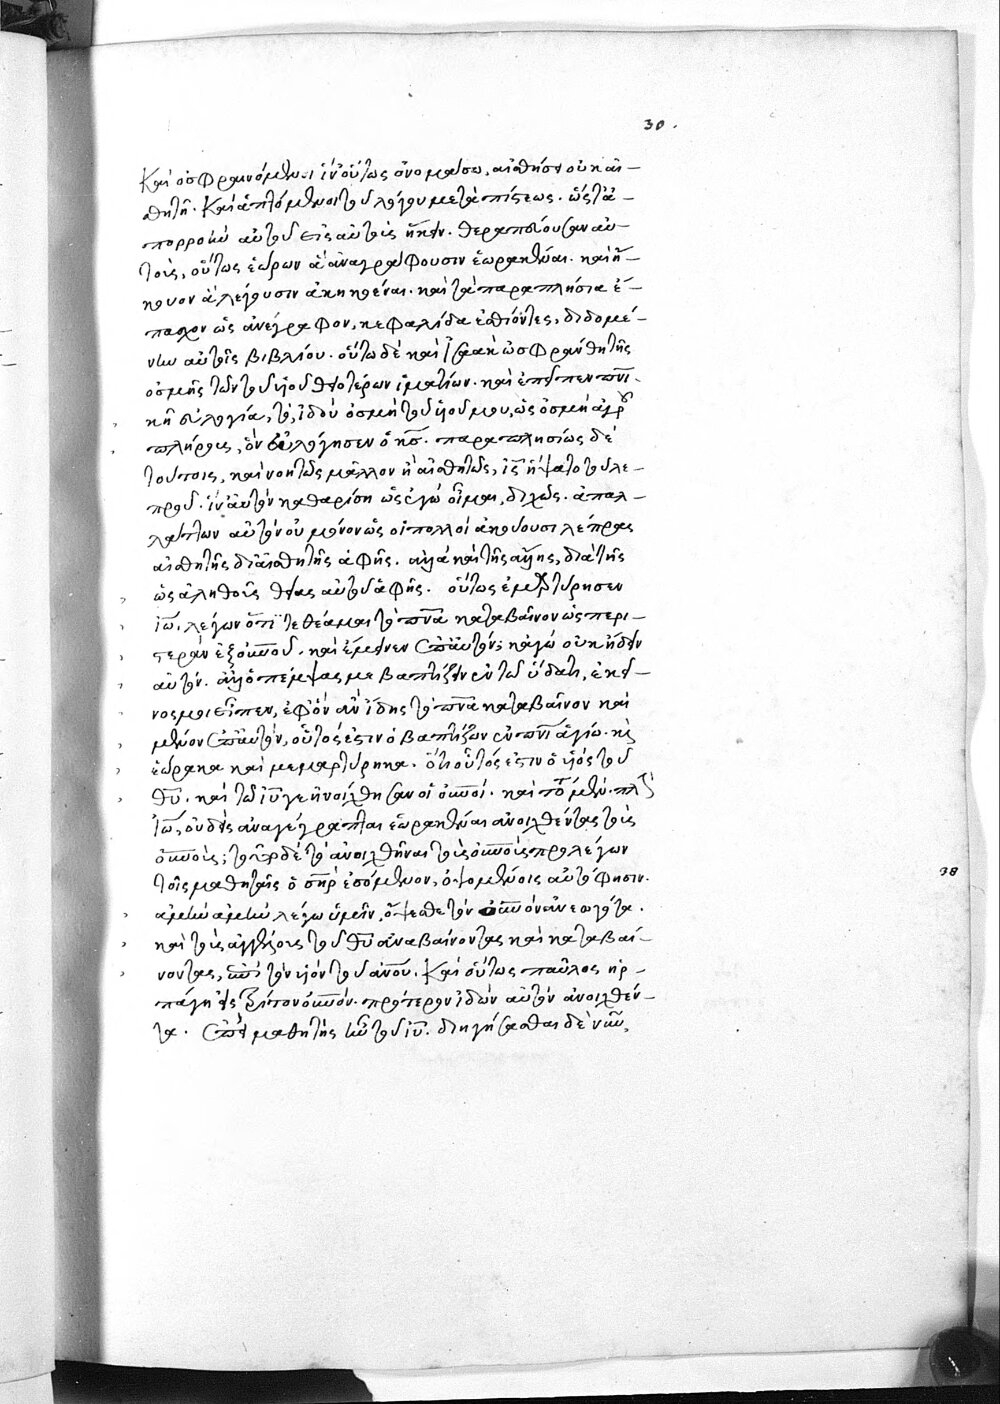 30.
Καὶ ὀσφραινόμενοι ἵν' οὕτως ὀνομάσω, αἰσθήσει οὐκ αἰ-
σθητῇ. Καὶ ἁπτόμενοι τοῦ λόγου μετὰ πίστεως. ὥστε ἀ-
πορροὴν αὐτοῦ εἰς αὐτοὺς ἥκειν. θεραπεύουσαν αὐ-
τοὺς, οὕτως ἑώρων ἃ ἀναγράφουσιν ἑωρακέναι. καὶ ἤ-
κουον ἃ λέγουσιν ἀκηκοέναι. καὶ τὰ παραπλήσια ἔ-
πασχον ὡς ἀνέγραφον, κεφαλίδα ἐσθίοντες, διδομέ-
νην αὐτοῖς βιβλίου. οὕτω δὲ καὶ Ἰσαὰκ ὠσφράνθη τῆς
ὀσμῆς τῶν τοῦ υἱοῦ θειοτέρων ἱματίων. καὶ ἐπεῖπεν πνι-
κῇ εὐλογίᾳ, τὸ, ἰδοὺ ὀσμὴ τοῦ υἱοῦ μου, ὡς ὀσμὴ ἀγροῦ
πλήρους, ὃν εὐλόγησεν ὁ κς. παραπλησίως δὲ
τούτοις, καὶ νοητῶς μᾶλλον ἢ αἰσθητῶς, ις ἥψατο τοῦ λε-
προῦ. ἵν' αὐτὸν καθαρίσῃ ὡς ἐγὼ οἶμαι, διχῶς. ἀπαλ-
λάττων αὐτὸν οὐ μόνον ὡς οἱ πολλοὶ ἀκούουσι λέπρας
αἰσθητῆς δι' αἰσθητῆς ἁφῆς. ἀλλὰ καὶ τῆς ἄλλης, διὰ τῆς
ὡς ἀληθῶς θείας αὐτοῦ ἁφῆς. οὕτως ἐμαρτύρησεν
ιω. λέγων ὅτι τεθέαμαι τὸ πνα καταβαῖνον ὡς περι-
στερὰν ἐξ ουνου. καὶ ἔμεινεν ἐπ' αὐτόν; κἀγὼ οὐκ ᾔδειν
αὐτόν. ἀλλ' ὁ πέμψας με βαπτίζειν ἐν τῷ ὕδατι, ἐκεῖ-
νος μοι εἶπεν, ἐφ' ὃν ἂν ἴδῃς τὸ πνα καταβαῖνον καὶ
μένον ἐπ' αὐτὸν, οὗτός ἐστιν ὁ βαπτίζων ἐν πνι ἁγίῳ. κἀγὼ
ἑώρακα καὶ μεμαρτύρηκα. ὅτι οὗτός ἐστιν ὁ υἱὸς τοῦ
θυ. καὶ τῷ ιυ γε ἠνοίχθησαν οἱ ουνοί. καὶ τότε μὲν πλὴν
ιω, οὐδεὶς ἀναγέγραπται ἑωρακέναι ἀνοιχθέντας τοὺς
ουνους; τοῦτο δὲ τὸ ἀνοιχθῆναι τοὺς ουνους προλέγων
τοῖς μαθηταῖς ὁ σηρ ἐσόμενον, ὀψομένοις αὐτό φησιν.
ἀμὴν ἀμὴν λέγω ὑμῖν, ὄψεσθε τὸν ουνον ἀνεωγότα.
καὶ τοὺς ἀγγέλους τοῦ θυ ἀναβαίνοντας καὶ καταβαί-
νοντας, ἐπὶ τὸν υἱὸν τοῦ ανου. Καὶ οὕτως παῦλος ἡρ-
πάγη εἰς τρίτον ουνον. πρότερον ἰδὼν αὐτὸν ἀνοιχθέν-
τα. ἐπεὶ μαθητὴς ἦν τοῦ ιυ. διηγήσασθαι δὲ νῦν,
38